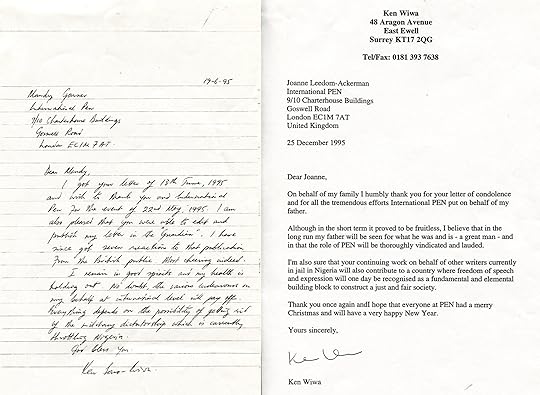 19-6-95
Mandy Garner
International Pen
9/10 Charterhouse Buildings
Goswell Road
London EC1M 7AT.
Dear Mandy,
I got your letter of 13th June, 1995
and wish to thank you and International
Pen for the event of 22nd May 1995. I am
also pleased that you were able to edit and
publish my letter in the "Guardian". I have
since got seven reactions to that publication
from the British public. Most cheering indeed.
I remain in good spirits and my health is
holding out. No doubt, the various endeavours on
my behalf at international level will pay off.
Everything depends on the possibility of getting rid
of the military dictatorship which is currently
throttling Nigeria.
God bless you.
Ken Saro-Wiwa.
Ken Wiwa
48 Aragon Avenue
East Ewell
Surrey KT17 2QG
Tel/Fax: 0181 393 7638
Joanne Leedom-Ackerman
International PEN
9/10 Charterhouse Buildings
Goswell Road
London EC1M 7AT
United Kingdom
25 December 1995
Dear Joanne,
On behalf of my family I humbly thank you for your letter of condolence
and for all the tremendous efforts International PEN put on behalf of my
father.
Although in the short term it proved to be fruitless, I believe that in the
long run my father will be seen for what he was and is - a great man - and
in that the role of PEN will be thoroughly vindicated and lauded.
I'm also sure that your continuing work on behalf of other writers currently
in jail in Nigeria will also contribute to a country where freedom of speech
and expression will one day be recognised as a fundamental and elemental
building block to construct a just and fair society.
Thank you once again andI hope that everyone at PEN had a merry
Christmas and will have a very happy New Year.
Yours sincerely,
Ken Wiwa